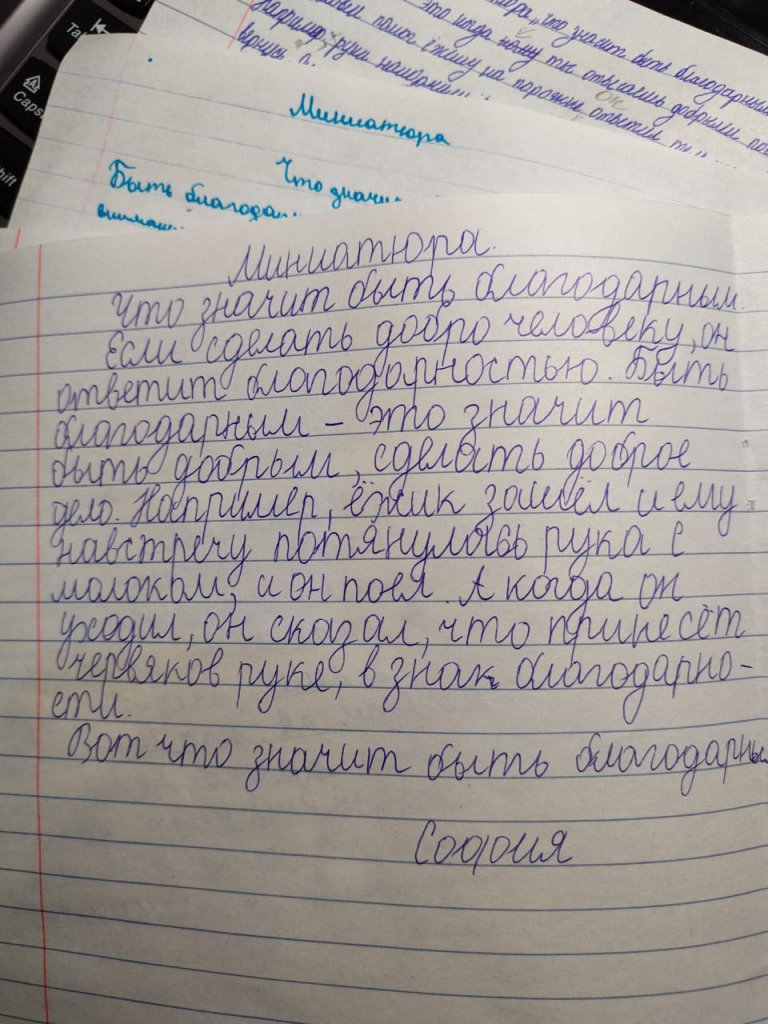 Та
Caps
hift
что значит быть благодарным
это когда ты
добрыми
на
руки
ответил
Миниатюра
Что значи
Быть благода
внима
Миниатюра.
Что значит быть благодарным.
Если сделать добро человеку, он
ответит благодарностью. Быть
благодарным – это значит
быть добрым, сделать доброе
дело. Например, ёжик зашёл и ему
навстречу потянулась рука с
молоком, и он поел. А когда он
уходил, он сказал, что принесёт
червяков руке, в знак благодарно-
сти.
Вот что значит быть благодарны
София